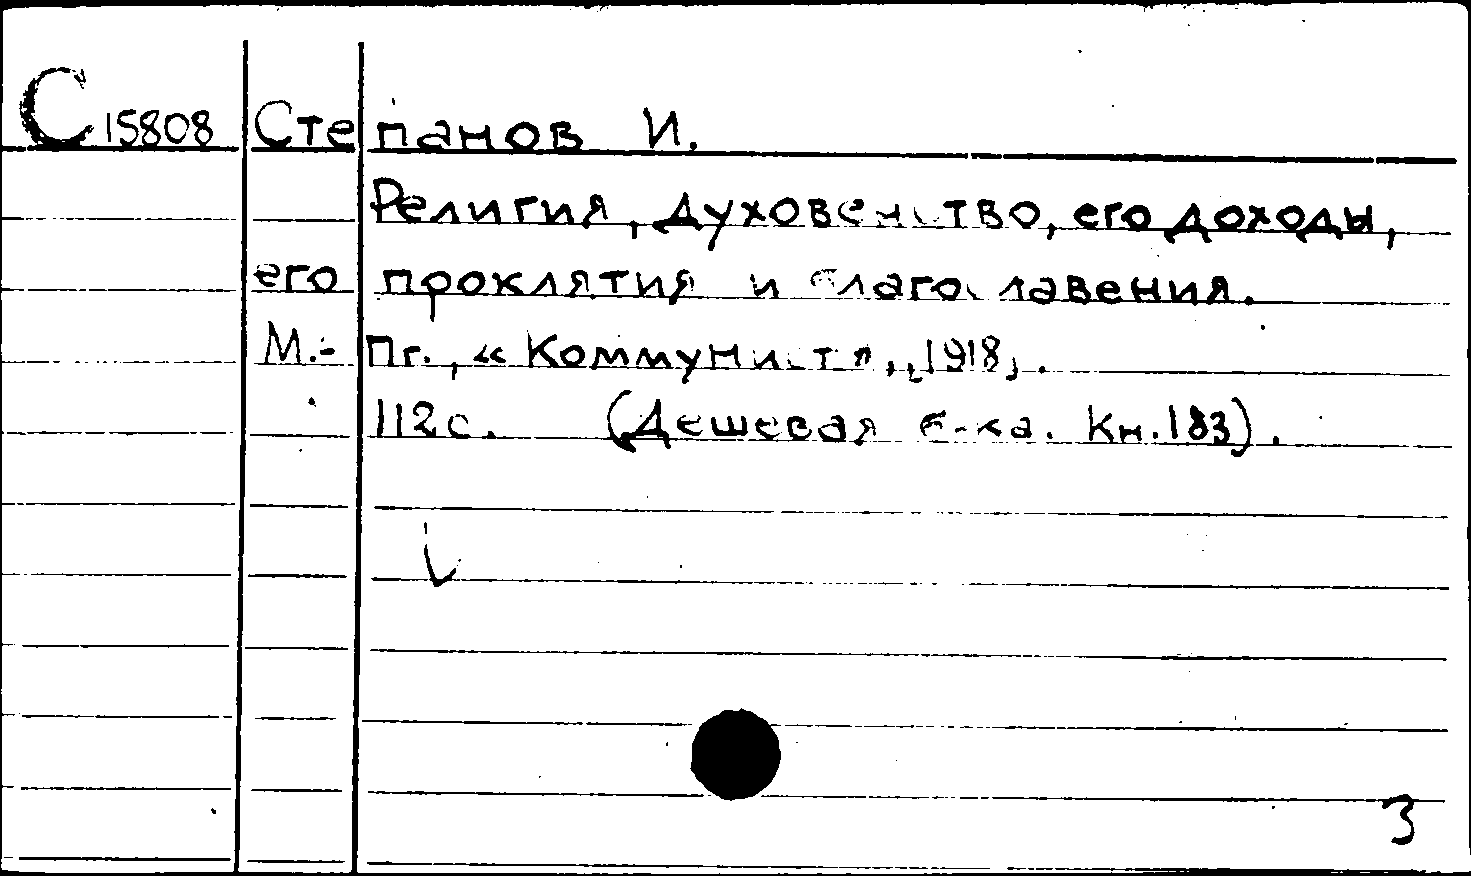 С 15808 Степанов И.
Религия, духовенство, его доходы,
его проклятия и благославения.
М.- Пг., «Коммунист», [1918].
112 с. (Дешевая б-ка. Кн. 183).
3